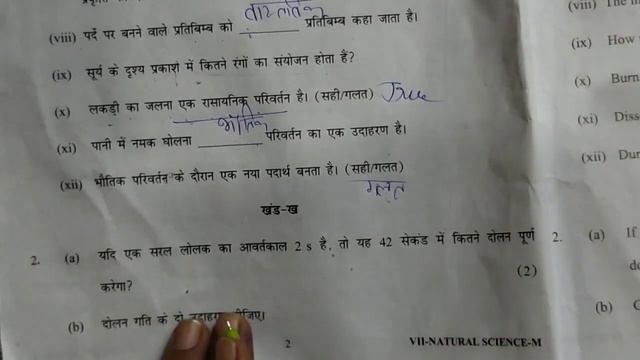 वास्तविक
(viii) पर्दे पर बनने वाले प्रतिबिम्ब को ________ प्रतिबिम्ब कहा जाता है।
(ix) सूर्य के दृश्य प्रकाश में कितने रंगों का संयोजन होता है?
(x) लकड़ी का जलना एक रासायनिक परिवर्तन है। (सही/गलत) True
भौतिक
(xi) पानी में नमक घोलना ________ परिवर्तन का एक उदाहरण है।
(xii) भौतिक परिवर्तन के दौरान एक नया पदार्थ बनता है। (सही/गलत)
गलत
खंड-ख
2. (a) यदि एक सरल लोलक का आवर्तकाल 2 s है, तो यह 42 सेकंड में कितने दोलन पूर्ण
करेगा? (2)
(b) दोलन गति के दो
2 VII-NATURAL SCIENCE-M
(viii)
(ix) How
(x) Burn
(xi) Diss
(xii) Dur
2. (a) If
(b)